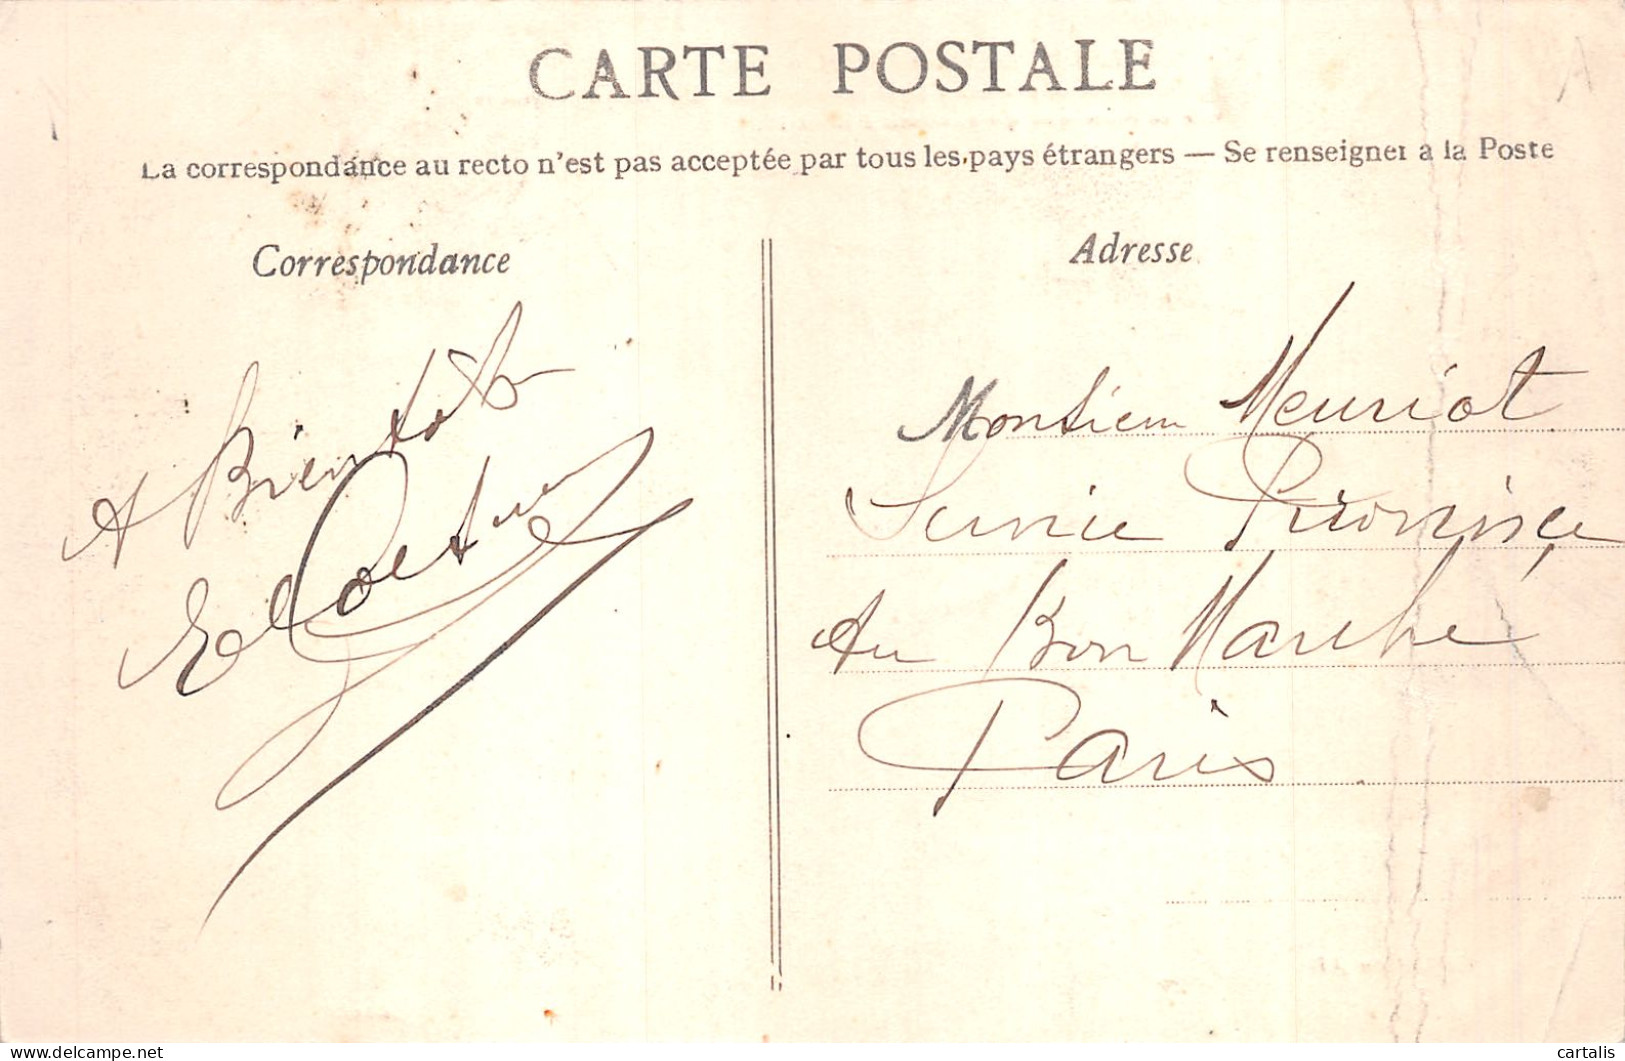 CARTE POSTALE
La correspondance au recto n'est pas acceptée par tous les pays étrangers — Se renseigner a la Poste
Correspondance
A Bientot
Adresse
Monsieur Meuriot
Service Province
Au Bon Marche
Paris
delcampe.net
cartalis